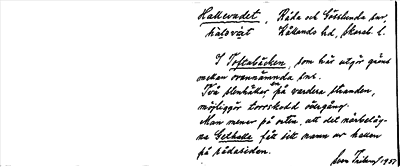 Hallevadet, Råda och Gösslunda snr,
Kållands hd, Skarab. l.
I Toftabäcken, som här utgör gräns
mellan ovannämnda snr.
Två stenhällar, en på vardera stranden,
möjliggör torrskodd övergång.
Man menar på orten, att det närbeläg-
na Gelhalle fått sitt namn av hallen
på rådasidan.
1937